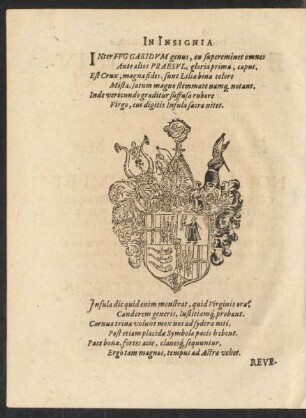 IN INSIGNIA
INter FVGGARIDVM genus, en supereminet omnes
Ante alios PRAESVL, gloria prima, caput.
Est Crux, magna fides, sunt Lilia bina colore
Mista, satum magno stemmate namq; notant.
Inde verecundo graditur suffusa rubore
Virgo, cui digitis Infula sacra nitet.
Infula dic quid enim monstrat, quid Virginis ora?
Candorem generis, Iustitiamq; probant.
Cornua trina volunt mox nos ad sydera niti,
Post etiam placidæ Symbola pacis habent.
Pax bona, fortes acie, clauesq; sequuntur,
Ergo tam magnos, tempus ad Astra vehet.
REVE-